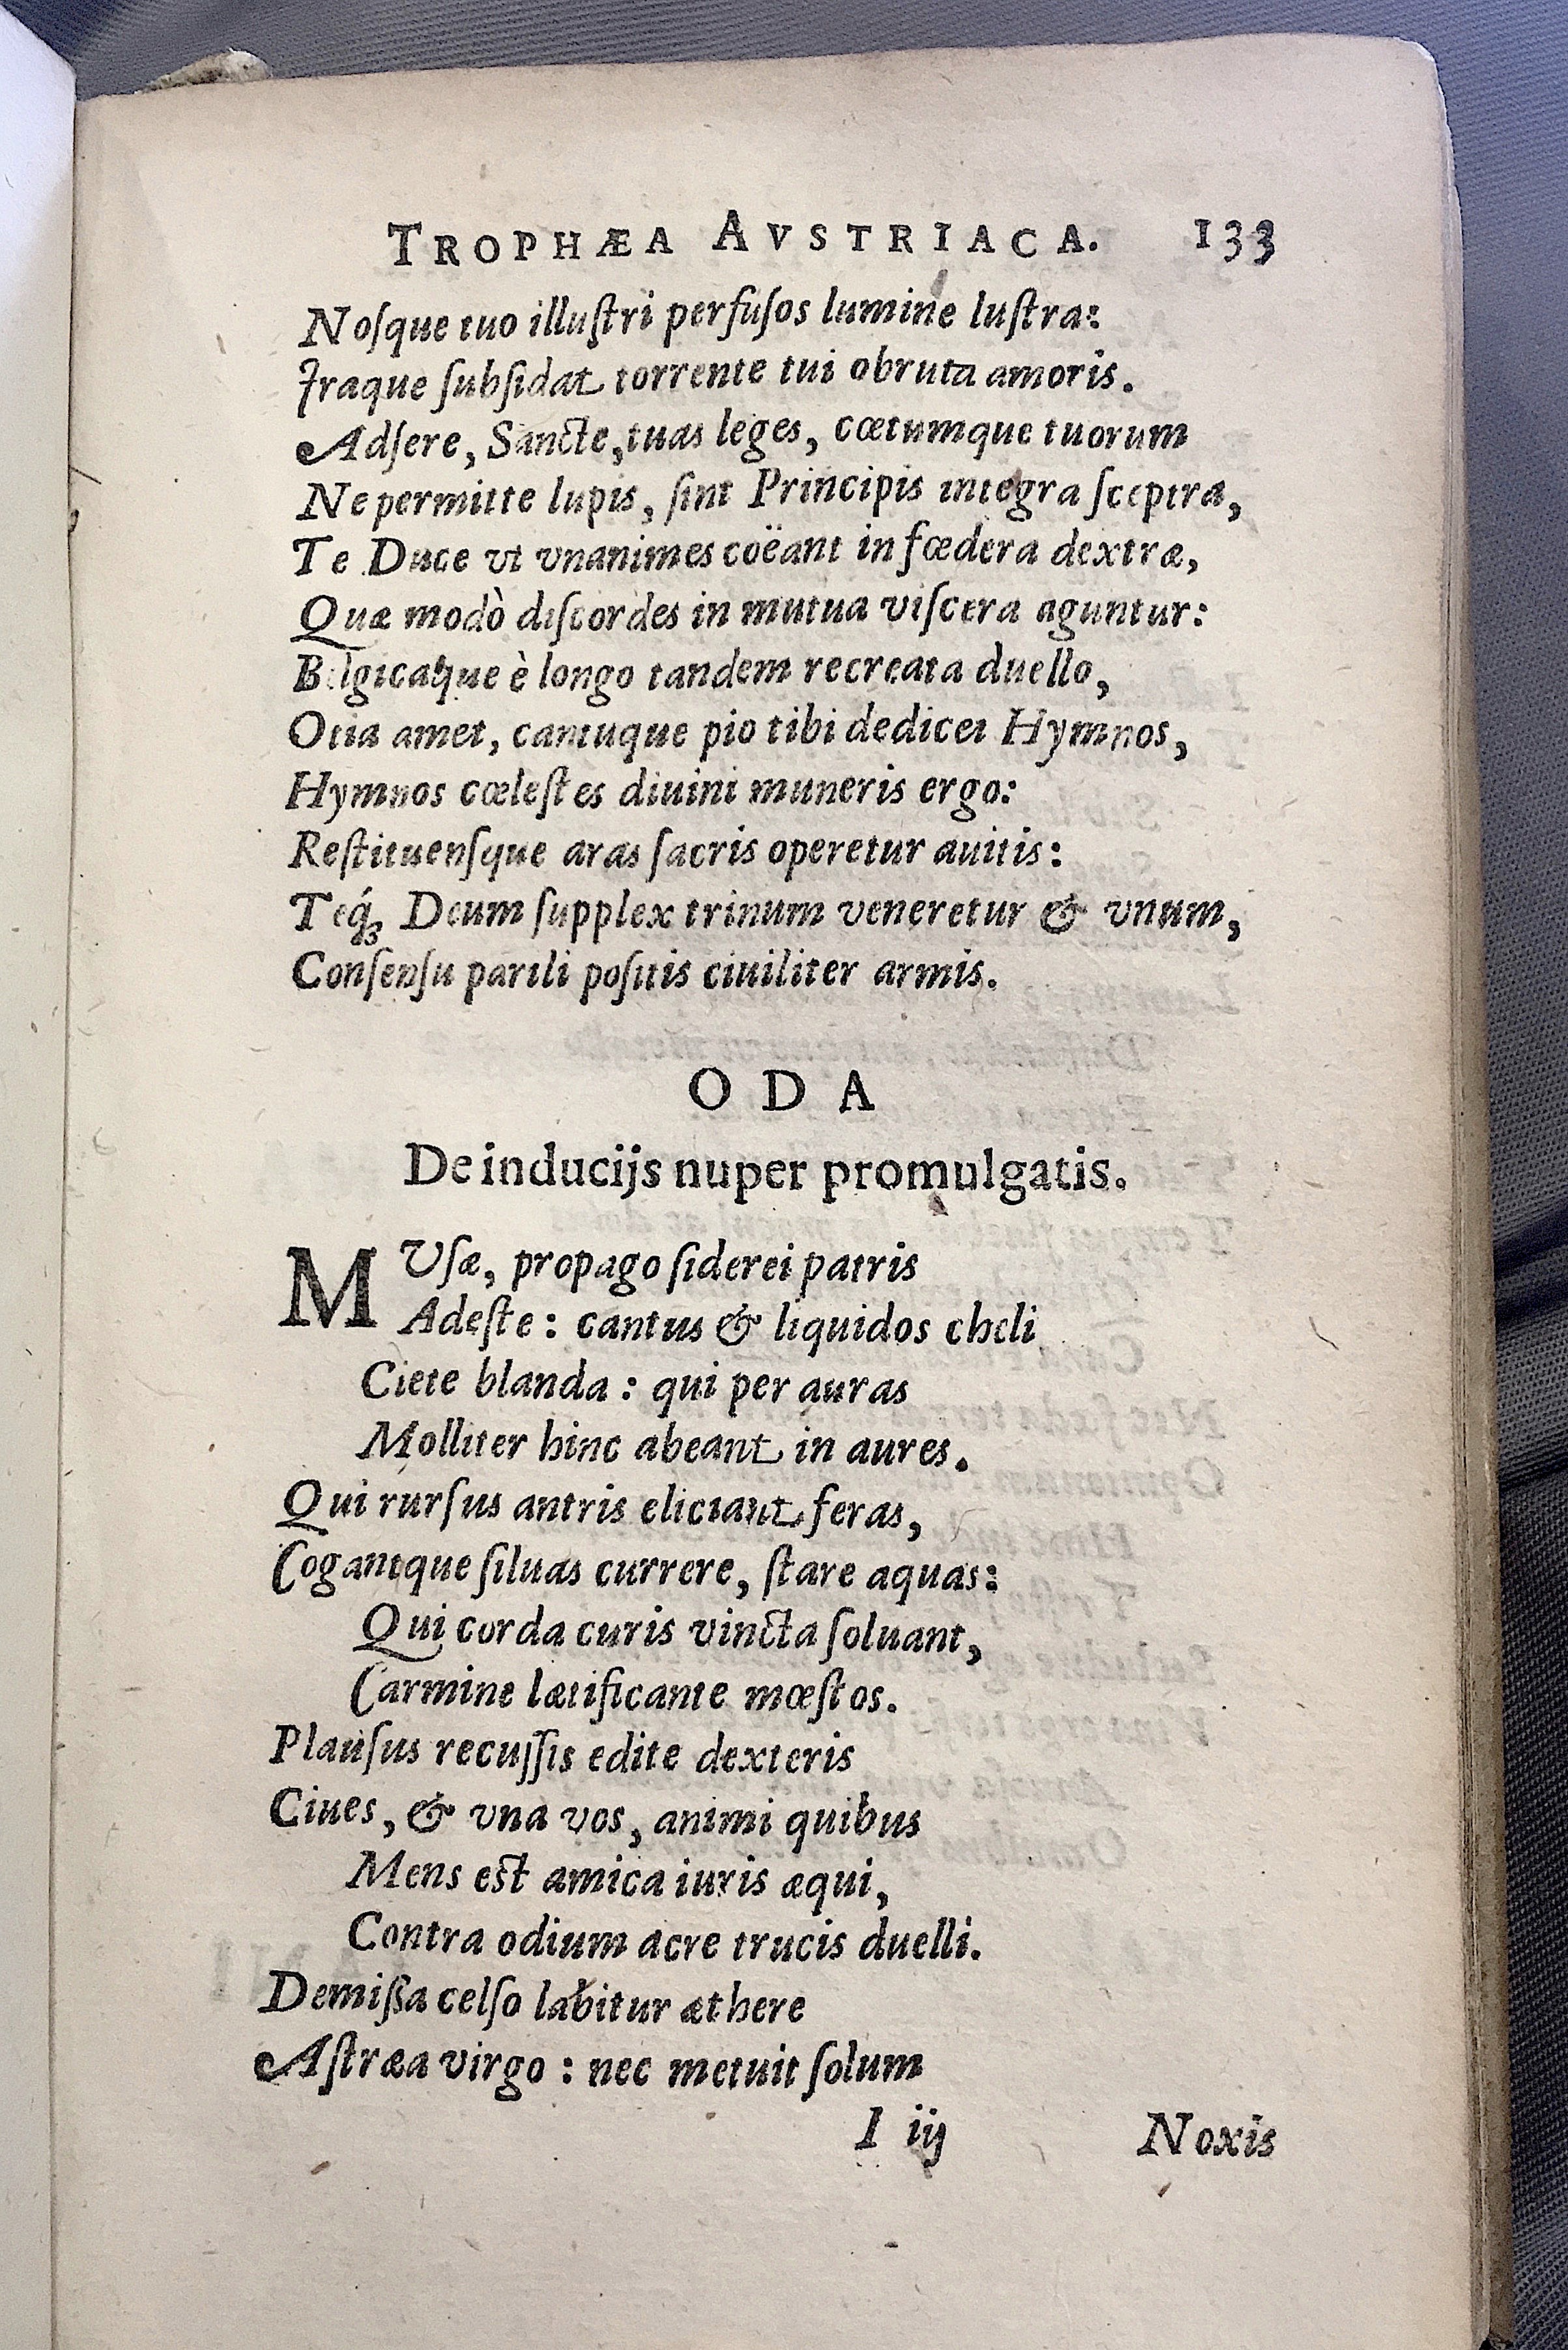 TROPHÆA AVSTRIACA. 133
Noſque tuo illuſtri perfuſos lumine luſtra:
Iraque ſubſidat torrente tui obruta amoris.
Adſere, Sancte, tuas leges, cœtumque tuorum
Ne permitte lupis, ſint Principis integra ſceptra,
Te Duce vt vnanimes coëant in fœdera dextræ,
Quæ modò diſcordes in mutua viſcera aguntur:
Belgicaque è longo tandem recreata duello,
Otia amet, cantuque pio tibi dedicet Hymnos,
Hymnos cœleſtes diuini muneris ergo:
Reſtituenſque aras ſacris operetur auitis:
Teq́ꝫ Deum ſupplex trinum veneretur & vnum,
Conſenſu parili poſitis ciuiliter armis.
ODA
De inducijs nuper promulgatis.
MVſæ, propago ſiderei patris
Adeſte: cantus & liquidos cheli
Ciete blanda: qui per auras
Molliter hinc abeant in aures.
Qui rurſus antris eliciant feras,
Cogantque ſiluas currere, ſtare aquas:
Qui corda curis vincta ſoluant,
Carmine lætificante mœſtos.
Plauſus recuſſis edite dexteris
Ciues, & vna vos, animi quibus
Mens eſt amica iuris æqui,
Contra odium acre trucis duelli.
Demiſſa celſo labitur æthere
Aſtræa virgo: nec metuit ſolum
I iij Noxis